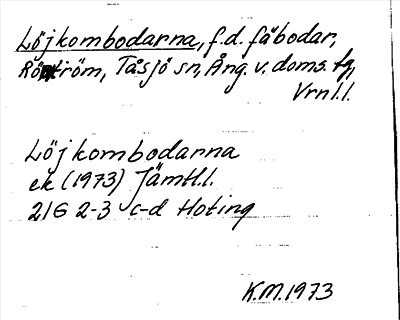 Löjkombodarna, f.d. fäbodar,
Röström, Tåsjö sn, Ång. v. doms. tg,
Vrnl.l.
Löjkombodarna
ek (1973) Jämtl.l.
21G 2-3 c-d Hoting
K.M. 1973